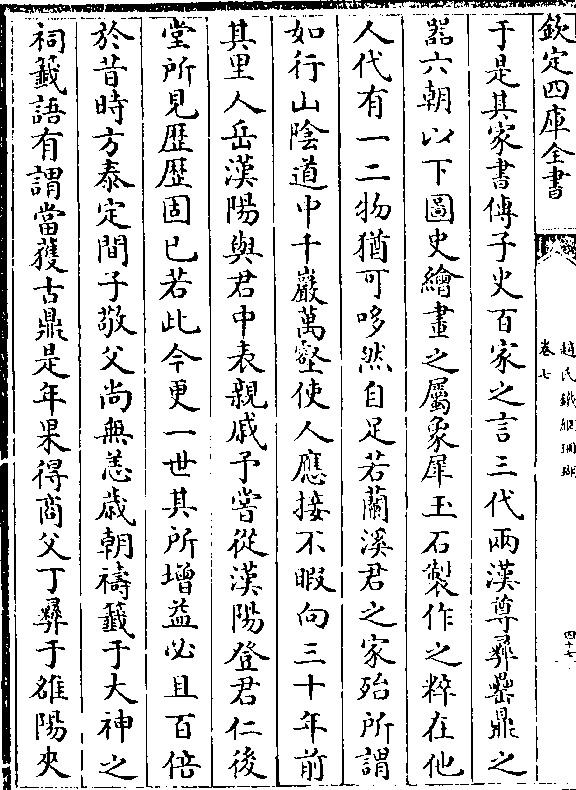 欽定四庫全書
趙氏鐵網珊瑚
卷七
四十七
于是其家書傳子史百家之言三代兩漢尊彝罍鼎之
器六朝以下圖史繪畫之屬象犀玉石製作之粹在他
人代有一二物猶可哆然自足若蘭溪君之家殆所謂
如行山陰道中千巖萬壑使人應接不暇向三十年前
其里人岳漢陽與君中表親戚予嘗從漢陽登君仁後
堂所見歴歴固已若此今更一世其所增益必且百倍
於昔時方泰定間子敬父尚無恙歳朝禱籤于大神之
祠籤語有謂當獲古鼎是年果得商父丁彝于雒陽夾